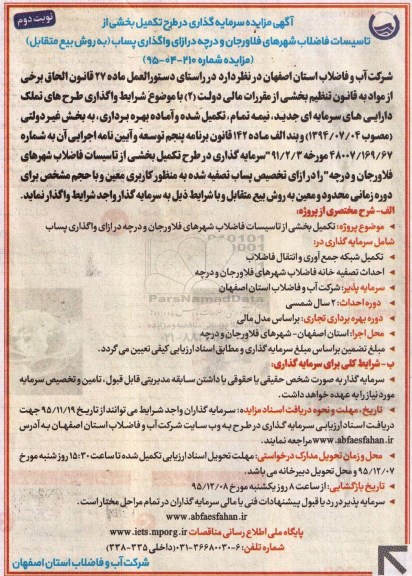 نوبت دوم
آگهی مزایده سرمایه گذاری در طرح تکمیل بخشی از
تاسیسات فاضلاب شهرهای فلاورجان و درچه در ازای واگذاری پساب (به روش بیع متقابل)
(مزایده شماره ۲۱۰-۰۴-۹۵)
شرکت آب و فاضلاب استان اصفهان در نظر دارد در راستای دستورالعمل ماده ۲۷ قانون الحاق برخی
از مواد به قانون تنظیم بخشی از مقررات مالی دولت (۲) با موضوع شرایط واگذاری طرح های تملک
دارایی های سرمایه ای جدید، نیمه تمام، تکمیل شده و آماده بهره برداری، به بخش غیر دولتی
(مصوب ۱۳۹۴/۰۷/۰۴) و بند الف ماده ۱۴۲ قانون برنامه پنجم توسعه و آیین نامه اجرایی آن به شماره
۴۸۰۰۷/۱۶۹/۶۷ مورخه ۹۱/۲/۳ "سرمایه گذاری در طرح تکمیل بخشی از تاسیسات فاضلاب شهرهای
فلاورجان و درچه" را در ازای تخصیص پساب تصفیه شده به منظور کاربری معین و با حجم مشخص برای
دوره زمانی محدود و معین به روش بیع متقابل و با شرایط ذیل به سرمایه گذار واجد شرایط واگذار نماید.
الف- شرح مختصری از پروژه:
موضوع پروژه: تکمیل بخشی از تاسیسات فاضلاب شهرهای فلاورجان و درچه در ازای واگذاری پساب
شامل سرمایه گذاری در:
تکمیل شبکه جمع آوری و انتقال فاضلاب
احداث تصفیه خانه فاضلاب شهرهای فلاورجان و درچه
سرمایه پذیر: شرکت آب و فاضلاب استان اصفهان
دوره احداث: ۲ سال شمسی
دوره بهره برداری تجاری: براساس مدل مالی
محل اجرا: استان اصفهان- شهرهای فلاورجان و درچه
مبلغ تضمین براساس مبلغ سرمایه گذاری و مطابق اسناد ارزیابی کیفی تعیین می گردد.
ب- شرایط کلی برای سرمایه گذاری:
سرمایه گذار به صورت شخص حقیقی یا حقوقی با داشتن سابقه مدیریتی قابل قبول، تامین و تخصیص سرمایه
مورد نیاز را به عهده خواهد داشت.
تاریخ، مهلت و نحوه دریافت اسناد مزایده: سرمایه گذاران واجد شرایط می توانند از تاریخ ۹۵/۱۱/۱۹ جهت
دریافت اسناد ارزیابی سرمایه گذاری در طرح به وب سایت شرکت آب و فاضلاب استان اصفهان به آدرس
www.abfaesfahan.ir مراجعه نمایند.
محل و زمان تحویل مدارک درخواستی: مهلت تحویل اسناد ارزیابی تکمیل شده تا ساعت ۱۵:۳۰ روز شنبه مورخ
۹۵/۱۲/۰۷ و محل تحویل دبیرخانه می باشد.
تاریخ بازگشایی: از ساعت ۸ روز یکشنبه مورخ ۹۵/۱۲/۰۸
سرمایه پذیر در رد یا قبول پیشنهادات فنی یا مالی سرمایه گذاران در تمام مراحل مختار است.
www.abfaesfahan.ir
پایگاه ملی اطلاع رسانی مناقصات www.iets.mporg.ir
شماره تلفن: ۶-۳۶۶۸۰۰۳۰-۰۳۱ (داخلی ۳۳۵-۳۳۸)
شرکت آب و فاضلاب استان اصفهان
ParsNamadData